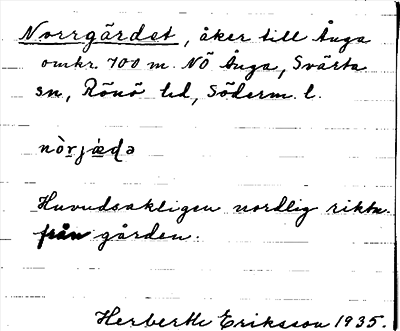 Norrgärdet, åker till Ånga
omkr. 700 m. NÖ Ånga, Svärta
sn, Rönö hd, Söderm. l.
nòrjæ̀ḍə
Huvudsakligen nordlig riktn.
från gården.
Herberth Eriksson 1935.